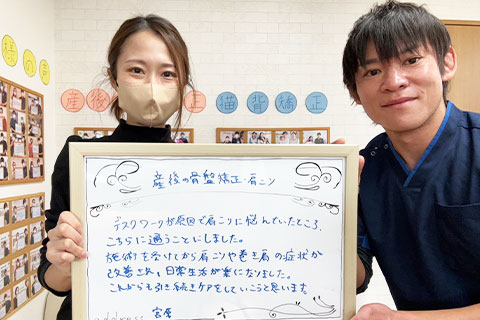 様の声
産後
正
猫背矯正
産後の骨盤矯正・肩こり
デスクワークが原因で肩こりに悩んでいたところ、
こちらに通うことにしました。
施術を受けてから肩こりや巻き肩の症状が
改善され、日常生活が楽になりました。
これからも引き続きケアをしていこうと思います
address
宮原